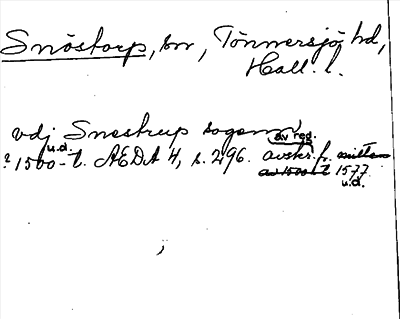 Snöstorp, sn, Tönnersjö hd,
Hall. l.
vdj Snestrup sogenn,
av reg.
? 1500-t. AEDA 4, s. 296. avskr. fr. mitten
u.d.
av 1500-t 1577
u.d.